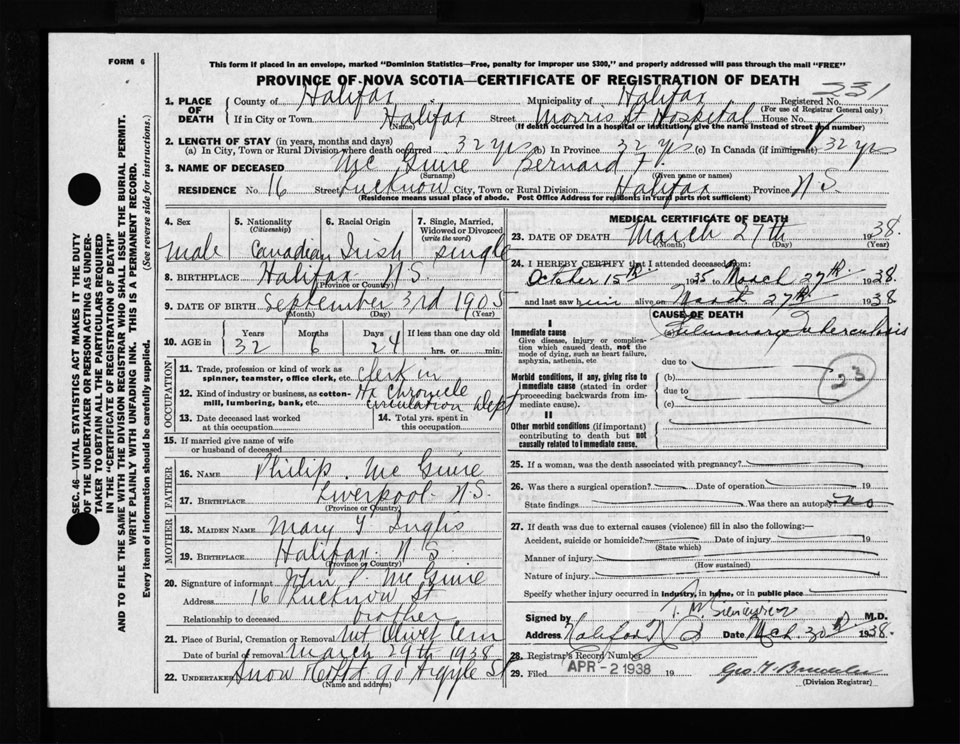 FORM 6
This form if placed in an envelope, marked "Dominion Statistics—Free, penalty for improper use $300," and properly addressed will pass through the mail "FREE"
PROVINCE OF NOVA SCOTIA—CERTIFICATE OF REGISTRATION OF DEATH
1. PLACE OF DEATH County of Halifax Municipality of Halifax Registered No. 231
(For use of Registrar General only)
If in City or Town Halifax Street Morris St Hospital House No.
(Name) (If death occurred in a hospital or institution, give the name instead of street and number)
2. LENGTH OF STAY (in years, months and days)
(a) In City, Town or Rural Division where death occurred 32 yrs (b) In Province 32 yrs (c) In Canada (if immigrant) 32 yrs
3. NAME OF DECEASED Mc Guire Bernard F.
(Surname) (Given name or names)
RESIDENCE No. 16 Street Lucknow City, Town or Rural Division Halifax Province N S.
(Residence means usual place of abode. Post Office Address for residents in rural parts not sufficient)
4. Sex 5. Nationality (Citizenship) 6. Racial Origin 7. Single, Married, Widowed or Divorced (write the word)
male Canadian Irish single
8. BIRTHPLACE Halifax N.S.
(Province or Country)
9. DATE OF BIRTH September 3rd 1905
(Month) (Day) (Year)
10. AGE in Years Months Days If less than one day old
32 6 24 hrs. or min.
OCCUPATION
11. Trade, profession or kind of work as spinner, teamster, office clerk, etc. clerk in
12. Kind of industry or business, as cotton-mill, lumbering, bank, etc. Hx Chronicle circulation Dept
13. Date deceased last worked at this occupation
14. Total yrs. spent in this occupation
15. If married give name of wife or husband of deceased
FATHER
16. NAME Philip Mc Guire
17. BIRTHPLACE Liverpool N.S.
(Province or Country)
MOTHER
18. MAIDEN NAME Mary Inglis
19. BIRTHPLACE Halifax N S.
(Province or Country)
20. Signature of informant John P. Mc Guire
Address 16 Lucknow St
Relationship to deceased brother
21. Place of Burial, Cremation or Removal Mt Olivet Cem
Date of burial or removal March 29th 1938
22. UNDERTAKER Snow & Co Ltd 90 Argyle St
(Name and address)
MEDICAL CERTIFICATE OF DEATH
23. DATE OF DEATH March 27th 1938.
(Month) (Day) (Year)
24. I HEREBY CERTIFY that I attended deceased from:
October 15th 1935 to March 27th 1938.
and last saw him alive on March 27th 1938
CAUSE OF DEATH
I
Immediate cause
Give disease, injury or complication which caused death, not the mode of dying, such as heart failure, asphyxia, asthenia, etc
Pulmonary Tuberculosis
due to
Morbid conditions, if any, giving rise to immediate cause (stated in order proceeding backwards from immediate cause).
(b)
due to
(c)
23
II
Other morbid conditions (if important) contributing to death but not causally related to immediate cause.
25. If a woman, was the death associated with pregnancy?
26. Was there a surgical operation? Date of operation 19
State findings Was there an autopsy? no
27. If death was due to external causes (violence) fill in also the following:—
Accident, suicide or homicide? Date of injury 19
(State which)
Manner of injury
(How sustained)
Nature of injury
Specify whether injury occurred in industry, in home, or in public place
Signed by M.D.
Address Halifax N S Date Mch. 30th 1938.
28. Registrar's Record Number
29. Filed APR -2 1938 19
(Division Registrar)
SEC. 46—VITAL STATISTICS ACT MAKES IT THE DUTY
OF THE UNDERTAKER OR PERSON ACTING AS UNDER-
TAKER TO OBTAIN ALL THE PARTICULARS REQUIRED
IN THE "CERTIFICATE OF REGISTRATION OF DEATH"
AND TO FILE THE SAME WITH THE DIVISION REGISTRAR WHO SHALL ISSUE THE BURIAL PERMIT.
WRITE PLAINLY WITH UNFADING INK. THIS IS A PERMANENT RECORD.
Every item of information should be carefully supplied. (See reverse side for instructions.)